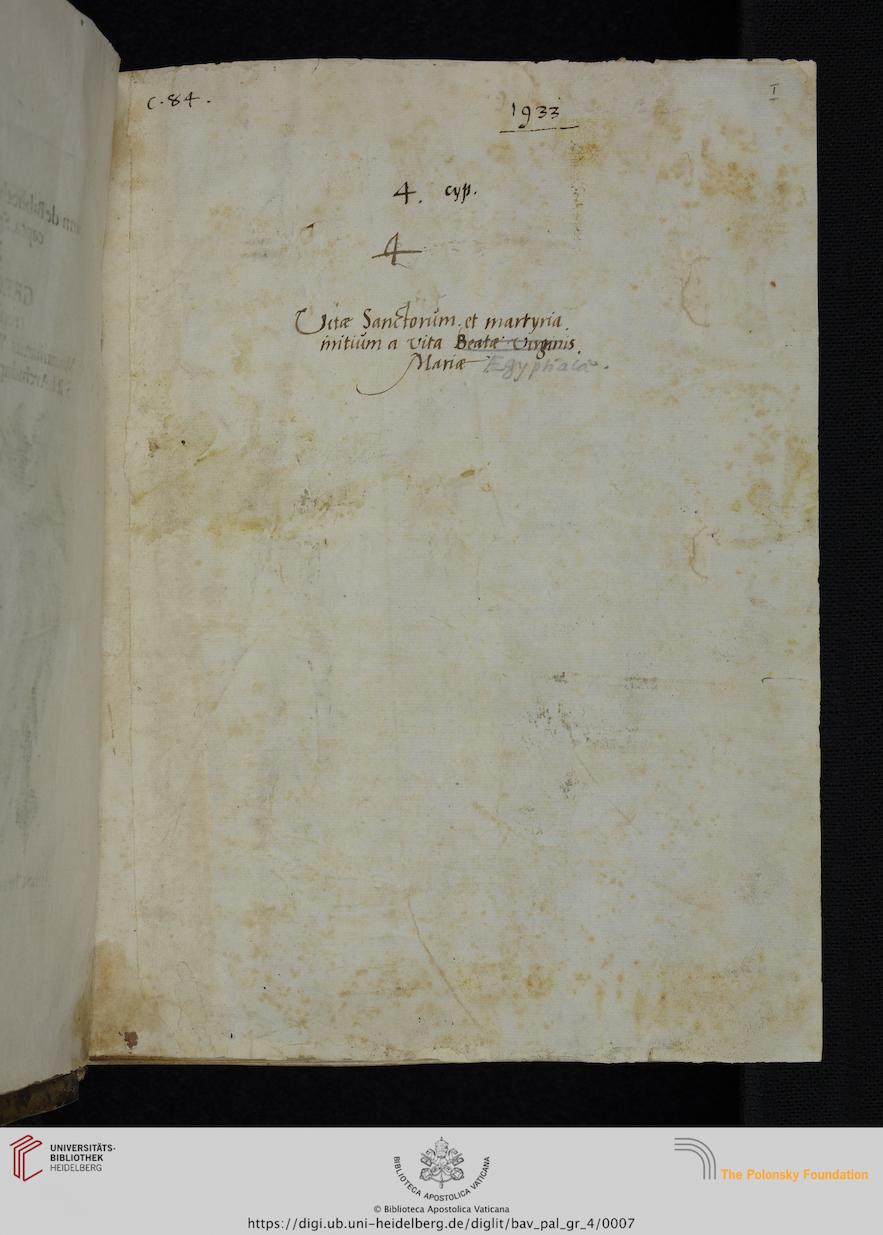 C. 84.
1933
I
4. cyp.
4
Vitæ Sanctorum. et martyria.
initium a vita Beatæ Virginis.
Mariæ Egyptiacæ.
UNIVERSITÄTS-
BIBLIOTHEK
HEIDELBERG
BIBLIOTECA APOSTOLICA VATICANA
The Polonsky Foundation
© Biblioteca Apostolica Vaticana
https://digi.ub.uni-heidelberg.de/diglit/bav_pal_gr_4/0007